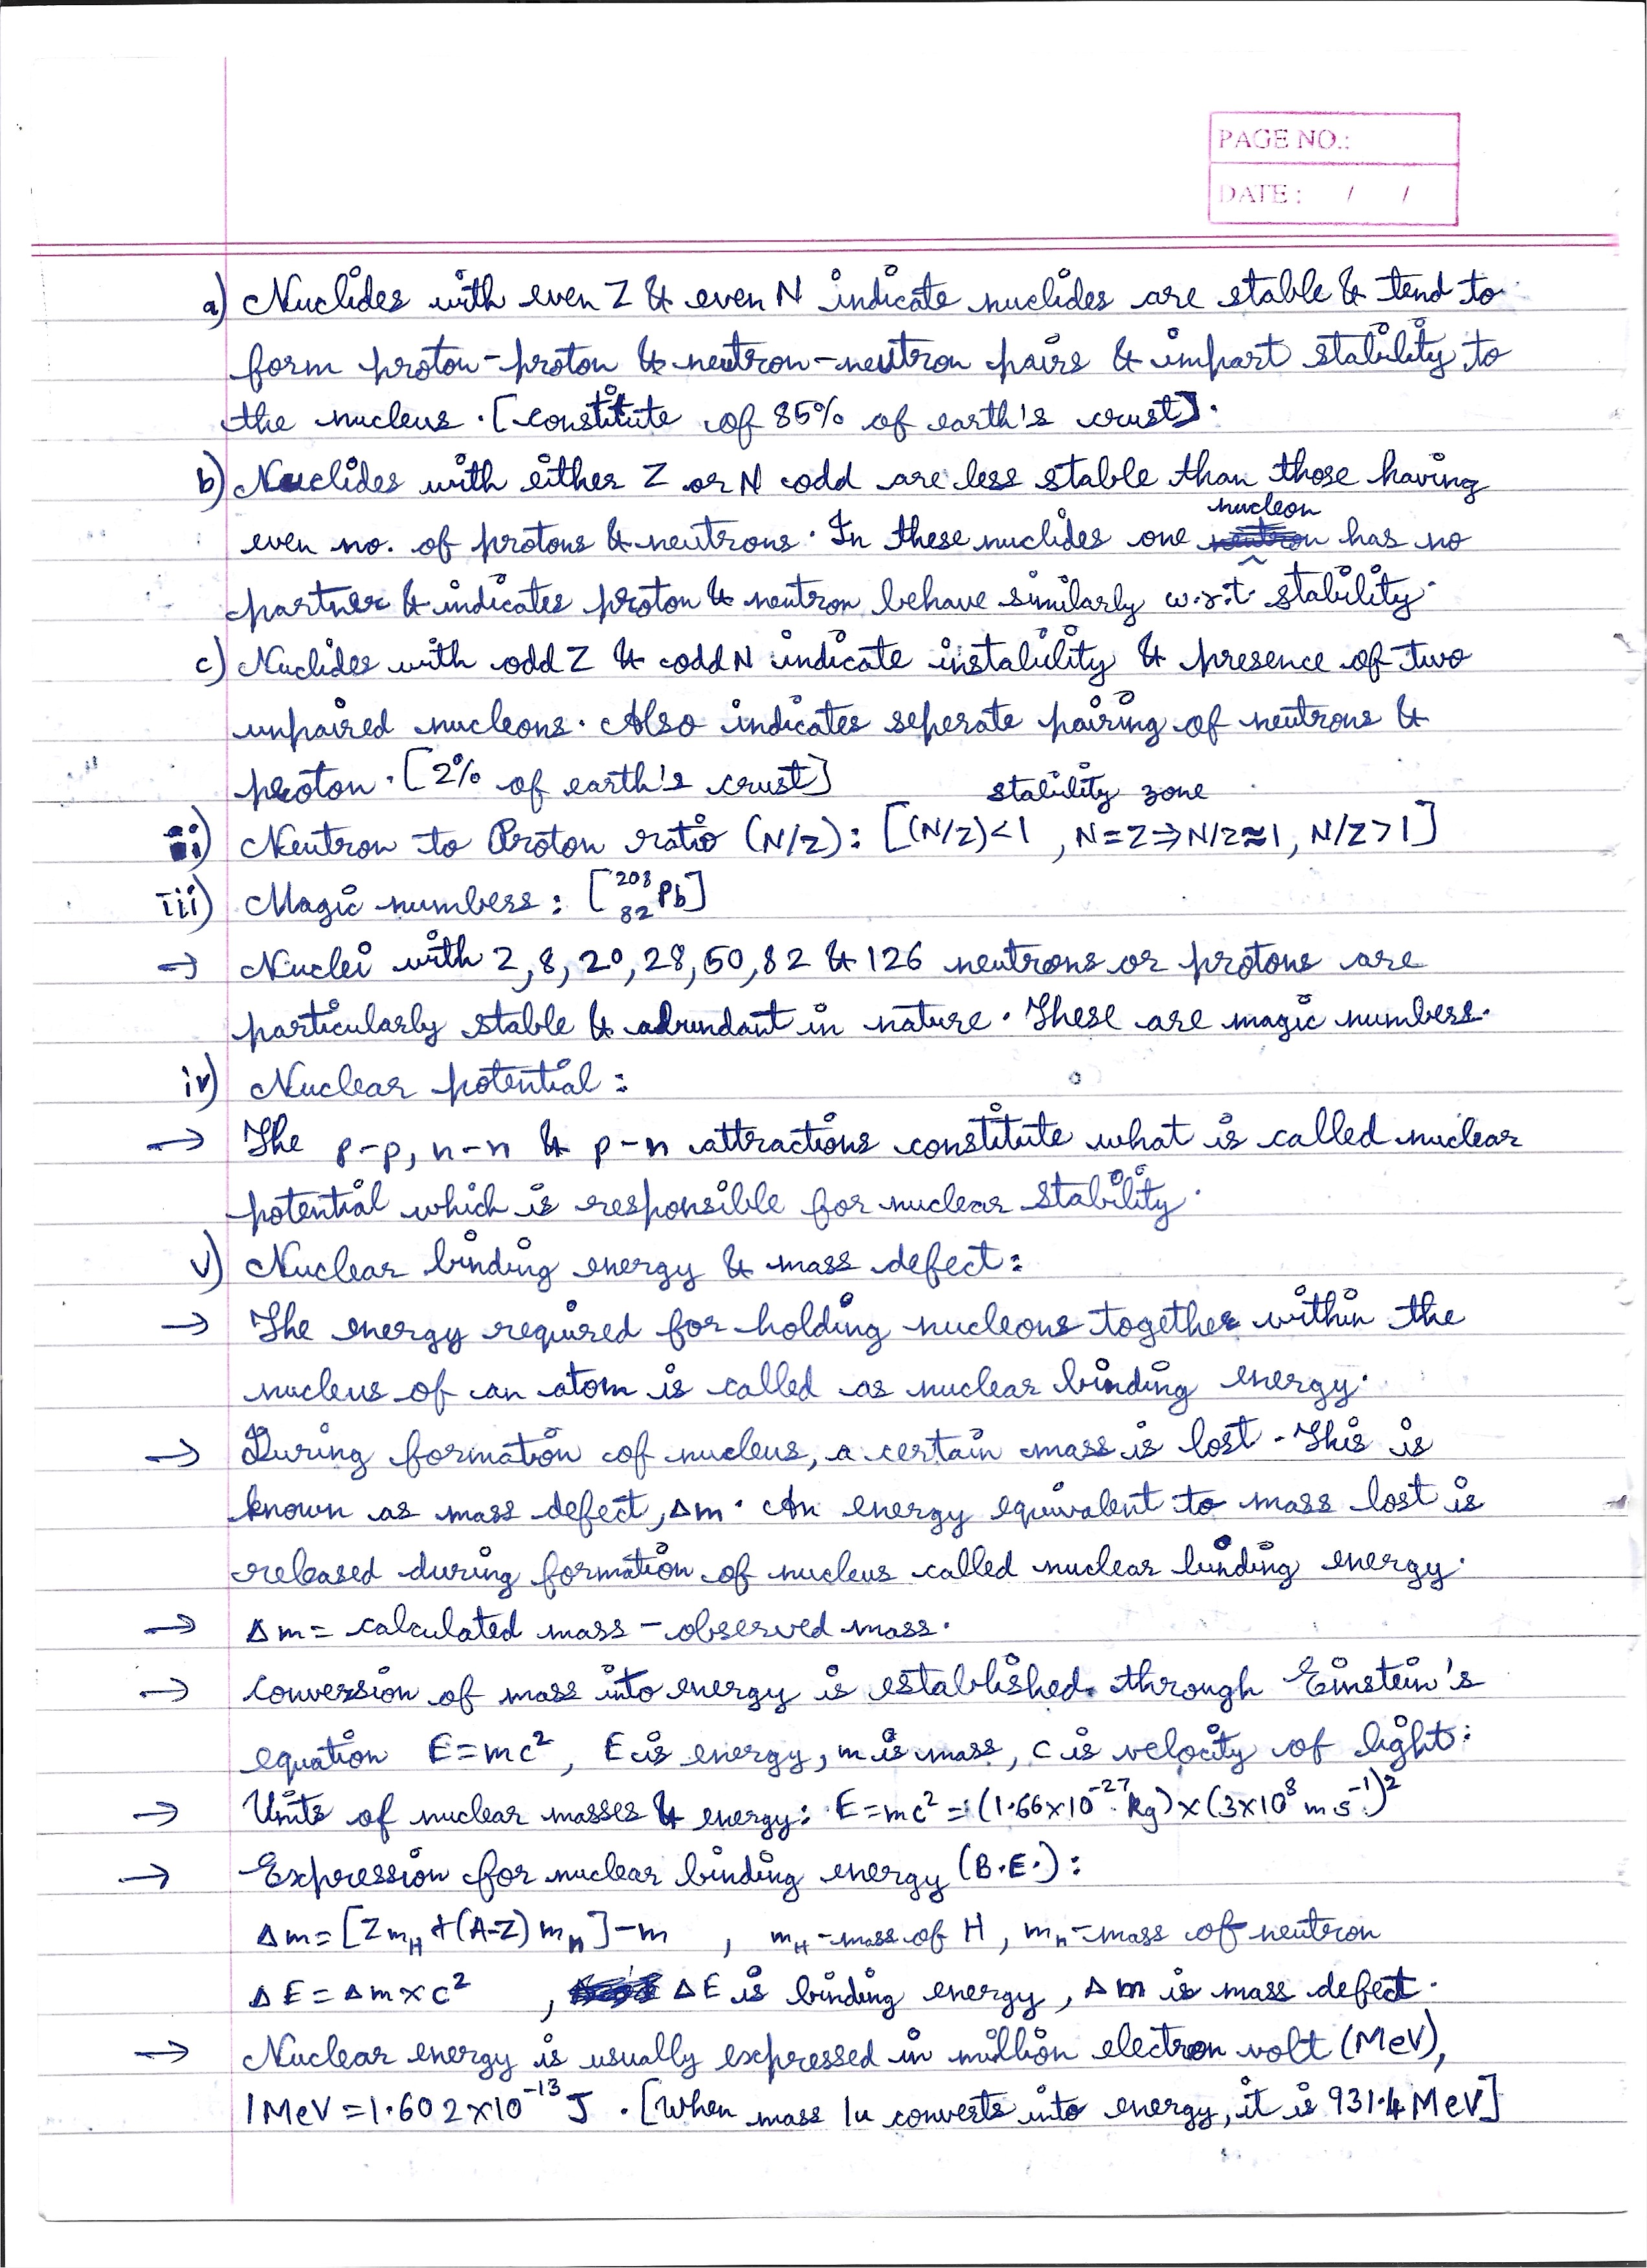 PAGE NO.:
DATE: / /
a) Nuclides with even Z & even N indicate nuclides are stable & tend to
form proton-proton & neutron-neutron pairs & impart stability to
the nucleus. [constitute of 85% of earth's crust].
b) Nuclides with either Z or N odd are less stable than those having
nucleon
even no. of protons & neutrons. In these nuclides one has no
partner & indicates proton & neutron behave similarly w.r.t. stability.
c) Nuclides with odd Z & odd N indicate instability & presence of two
unpaired nucleons. Also indicates seperate pairing of neutrons &
proton. [2% of earth's crust]
stability zone
ii) Neutron to Proton ratio (N/Z): [(N/Z)<1, N=Z⇒N/Z≈1, N/Z>1]
iii) Magic numbers: [²⁰⁸₈₂Pb]
→ Nuclei with 2,8,20,28,50,82 & 126 neutrons or protons are
particularly stable & abundant in nature. These are magic numbers.
iv) Nuclear potential:
→ The p-p, n-n & p-n attractions constitute what is called nuclear
potential which is responsible for nuclear stability.
v) Nuclear binding energy & mass defect:
→ The energy required for holding nucleons together within the
nucleus of an atom is called as nuclear binding energy.
→ During formation of nucleus, a certain mass is lost. This is
known as mass defect, Δm. An energy equivalent to mass lost is
released during formation of nucleus called nuclear binding energy.
→ Δm = calculated mass - observed mass.
→ Conversion of mass into energy is established through Einstein's
equation E=mc², E is energy, m is mass, c is velocity of light:
→ Units of nuclear masses & energy: E=mc²=(1.66×10⁻²⁷ kg)×(3×10⁸ ms⁻¹)²
→ Expression for nuclear binding energy (B.E.):
Δm=[Zm_H+(A-Z)m_n]-m , m_H-mass of H, m_n-mass of neutron
ΔE=Δm×c² , ΔE is binding energy, Δm is mass defect.
→ Nuclear energy is usually expressed in million electron volt (MeV),
1MeV=1.602×10⁻¹³J. [When mass 1u converts into energy, it is 931.4MeV]